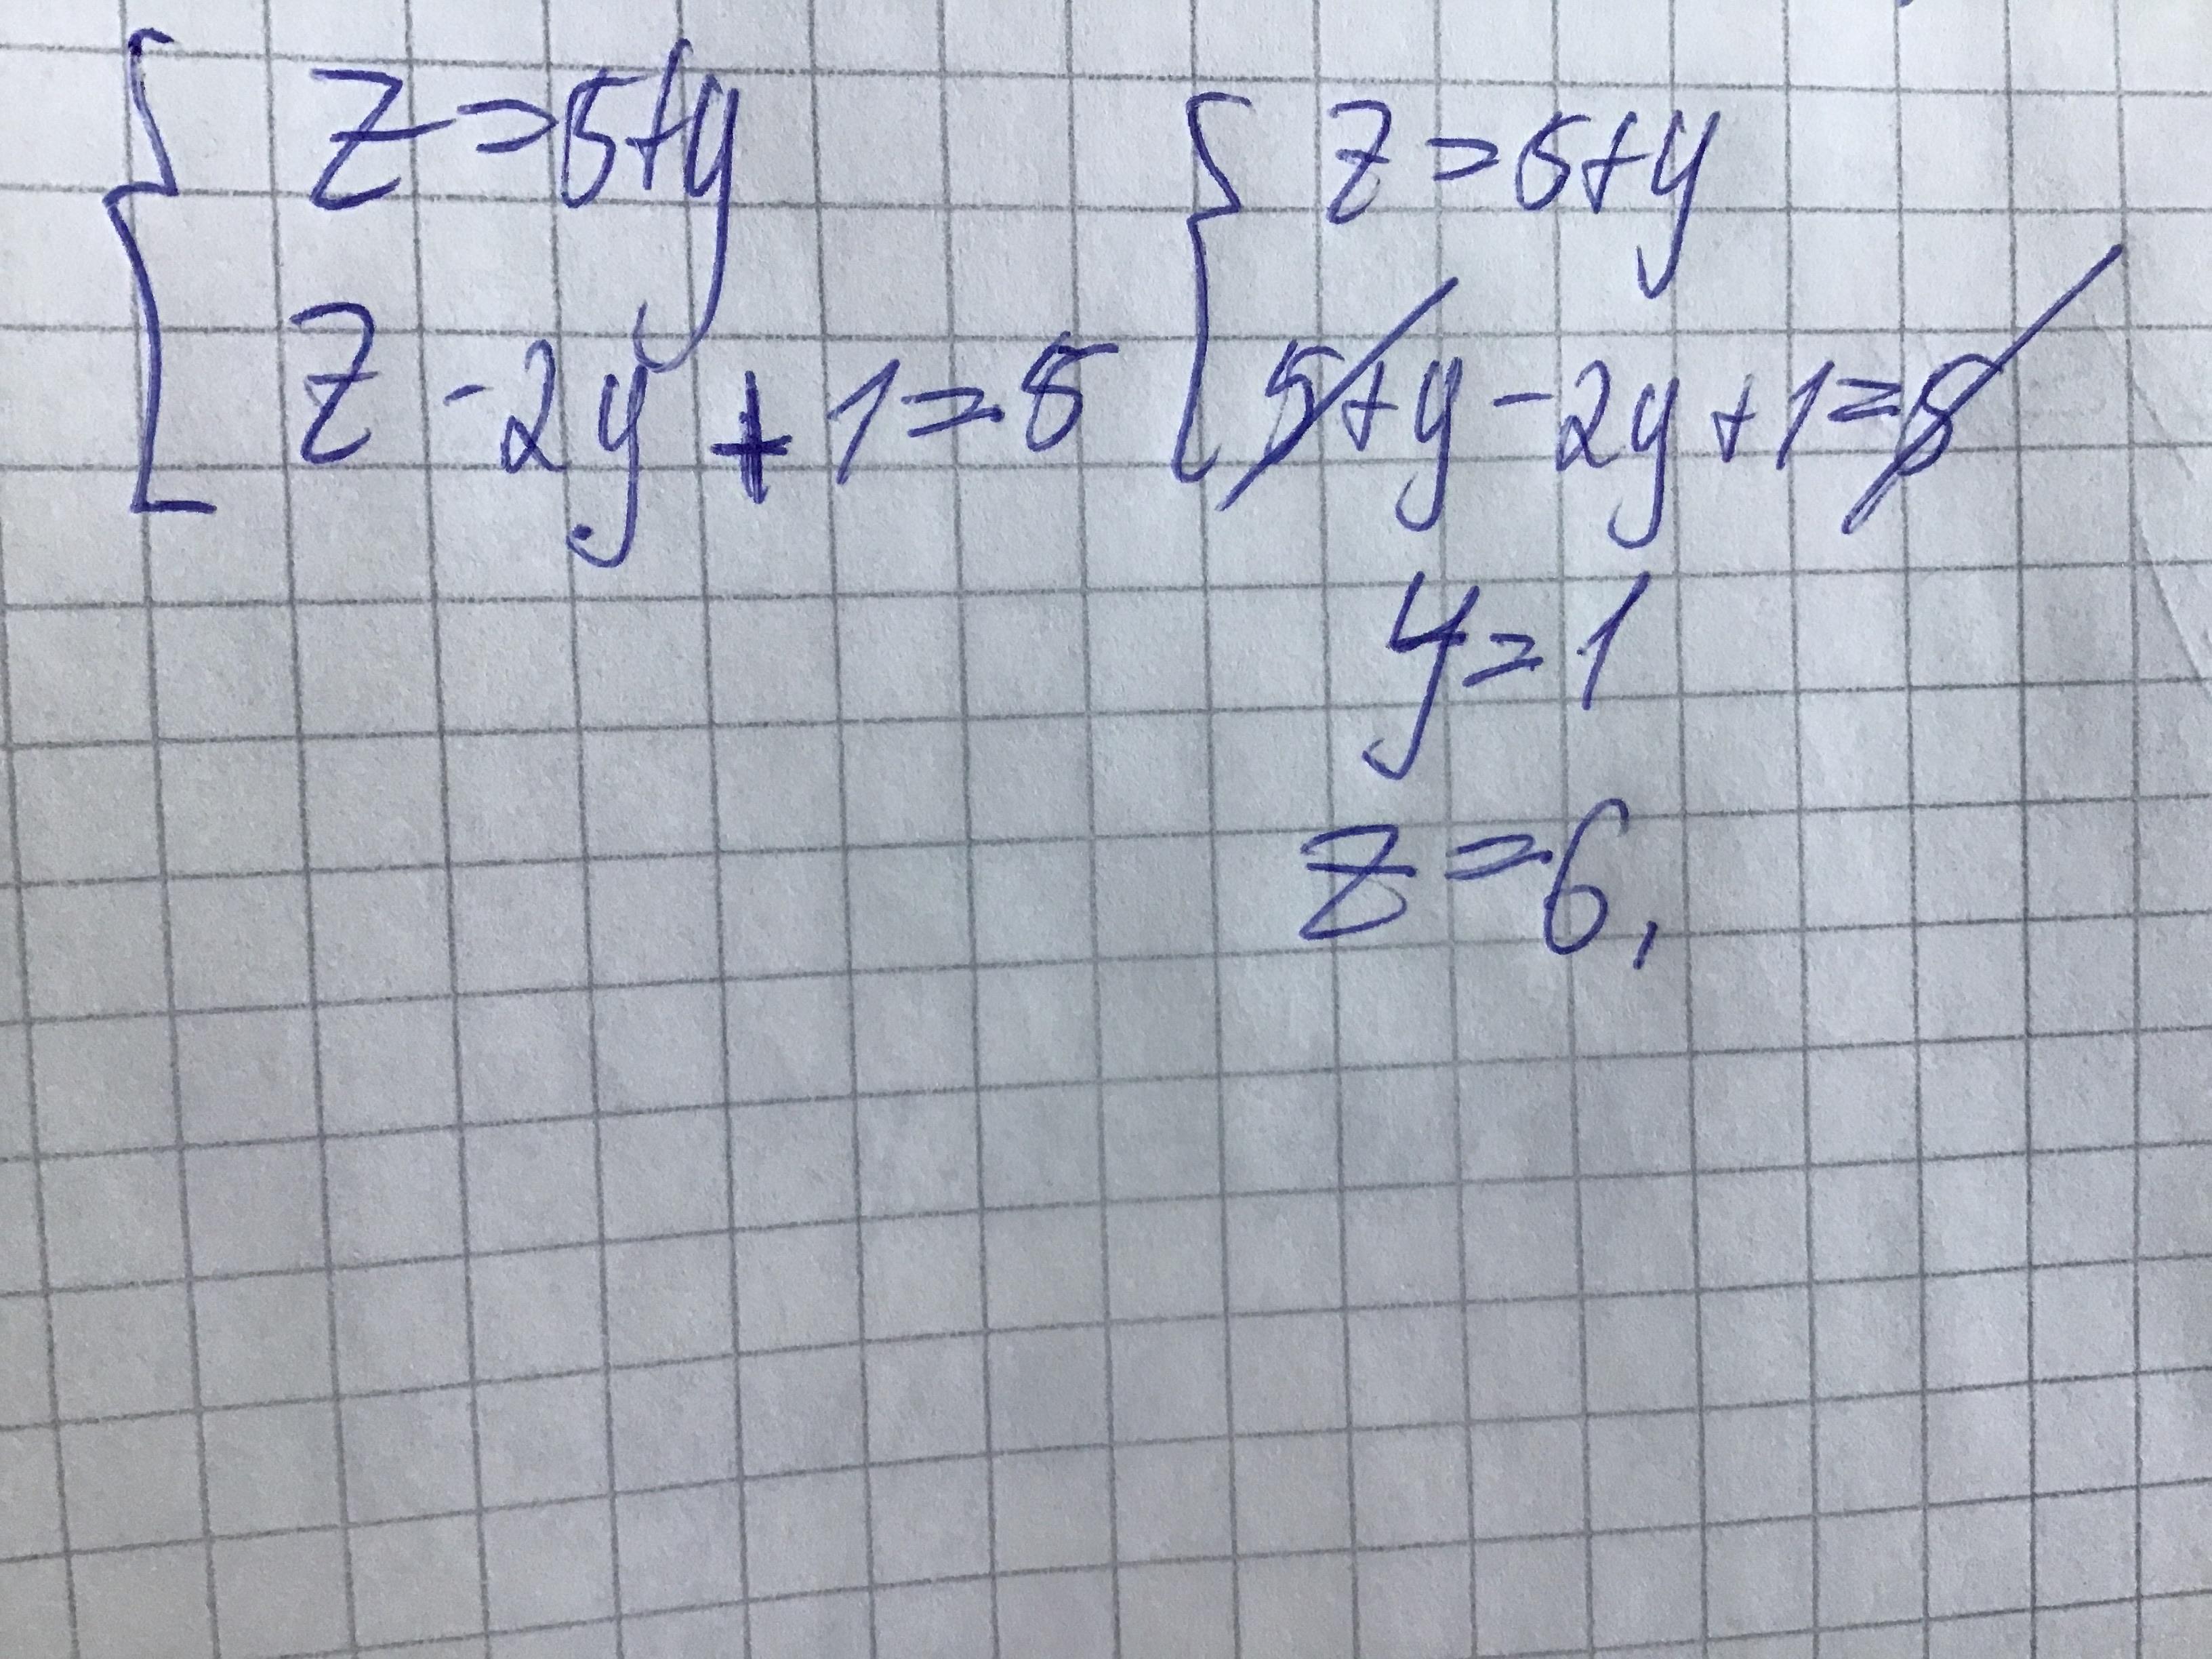 { z=5+y
z-2y+1=5
{ z=5+y
5+y-2y+1=5
y=1
z=6,